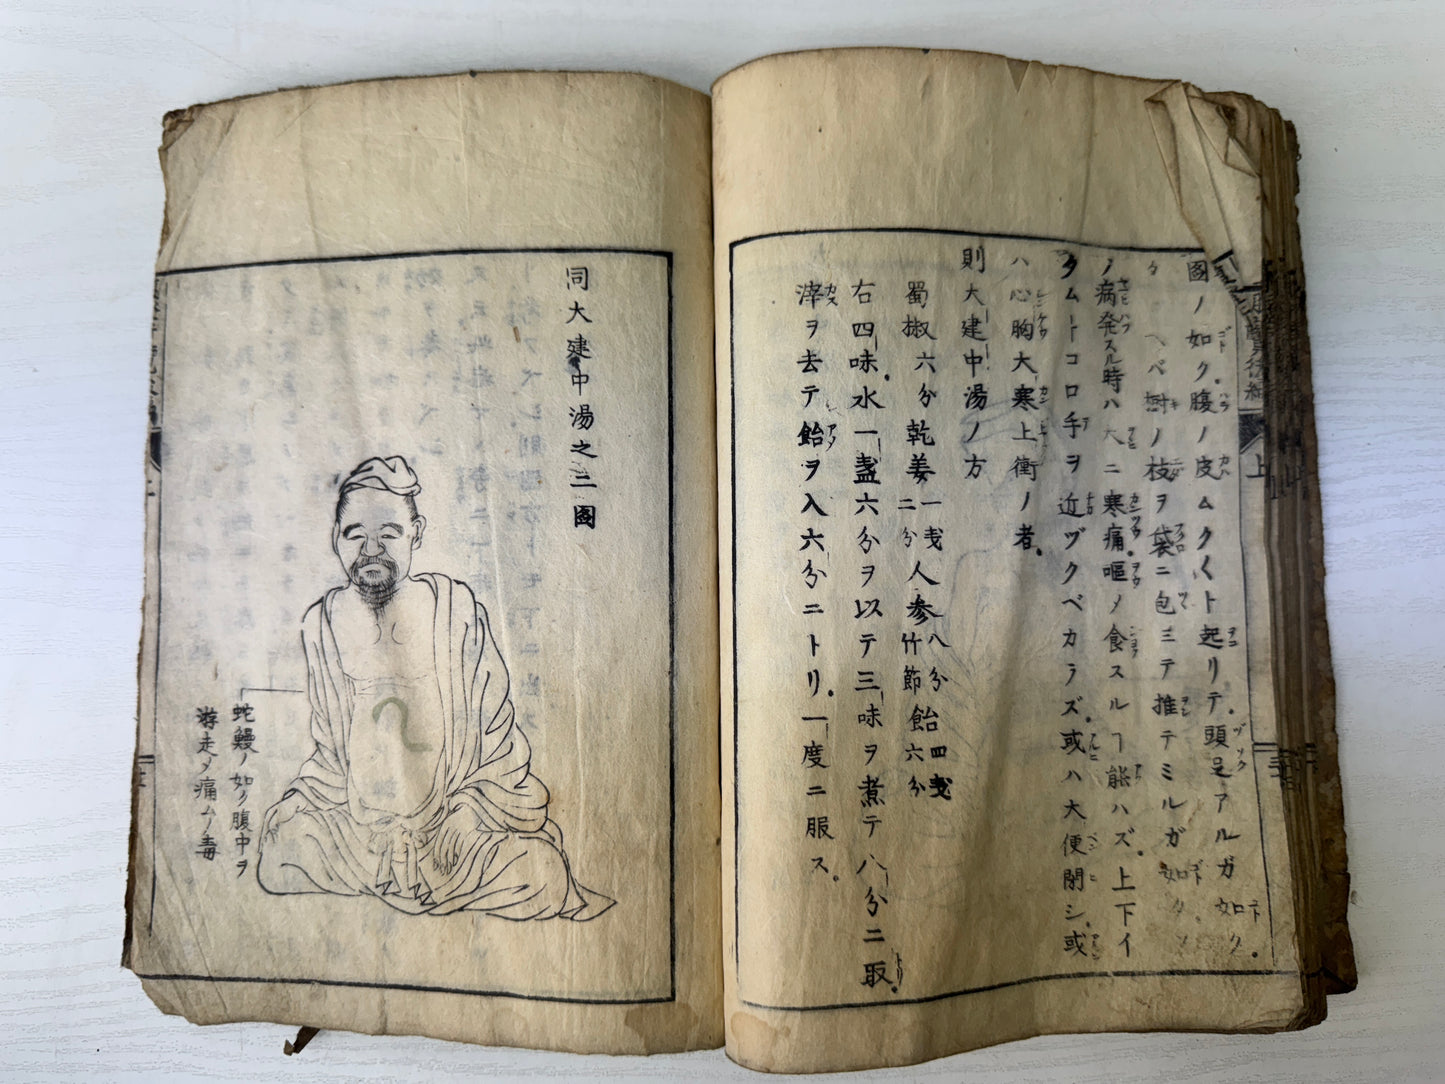 圖ノ如ク腹ノ皮ムクムクト起リテ頭足アルガ如ク
ヘバ樹ノ枝ヲ袋ニ包ミテ推テミルガ如ク
ノ病発スル時ハ大ニ寒痛嘔メ食スルヿ能ハズ上下イ
タムトコロ手ヲ近ヅクベカラズ或ハ大便閉シ或
ハ心胸大寒上衝ノ者
則大建中湯ノ方
蜀椒六分乾姜一戔二分人参八分竹節飴四戔六分
右四味水一盞六分ヲ以テ三味ヲ煮テ八分ニ取
滓ヲ去テ飴ヲ入六分ニトリ一度ニ服ス
上
同大建中湯之三圖
蛇鰻ノ如ク腹中ヲ
游走メ痛ムノ毒